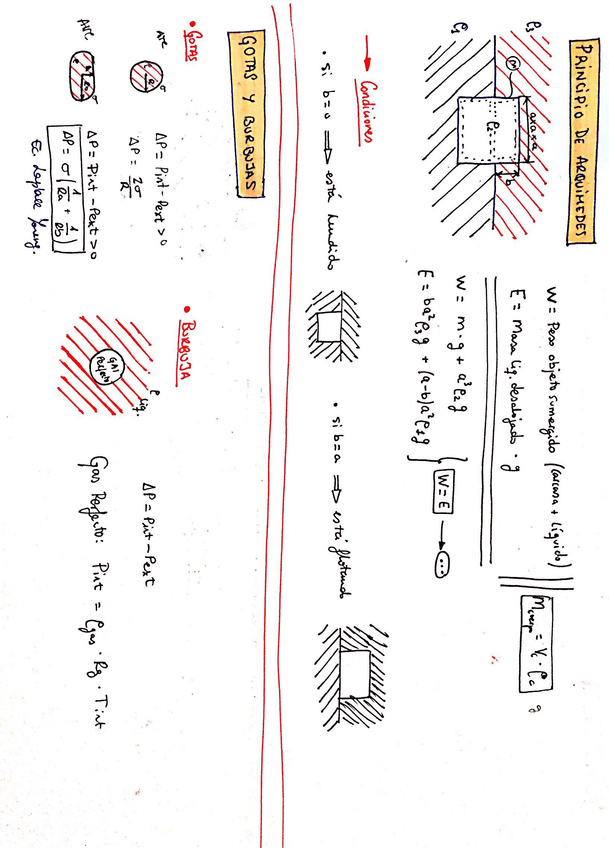 PRINCIPIO DE ARQUÍMEDES
ρ3
ρ1
m
arista a
ρ2
b
W = Peso objeto sumergido (carcasa + líquido)
E = Masa liq. desalojado · g
Mcuerpo = Vc · ρc
g
W = m·g + a³ρ2g
E = ba²ρ3g + (a-b)a²ρ1g
W = E → ...
→ Condiciones
• si b=0 ⇒ está hundido
• si b=a ⇒ está flotando
GOTAS Y BURBUJAS
• GOTAS
ΔP = Pint - Pext > 0
ΔP = 2σ/R
σ
ΔP = Pint - Pext > 0
ΔP = σ(1/Ra + 1/Rb)
Ec Laplace Young.
• BURBUJA
GAS
Perfecto
ρ liq.
ΔP = Pint - Pext
Gas Perfecto: Pint = ρgas · Rg · Tint